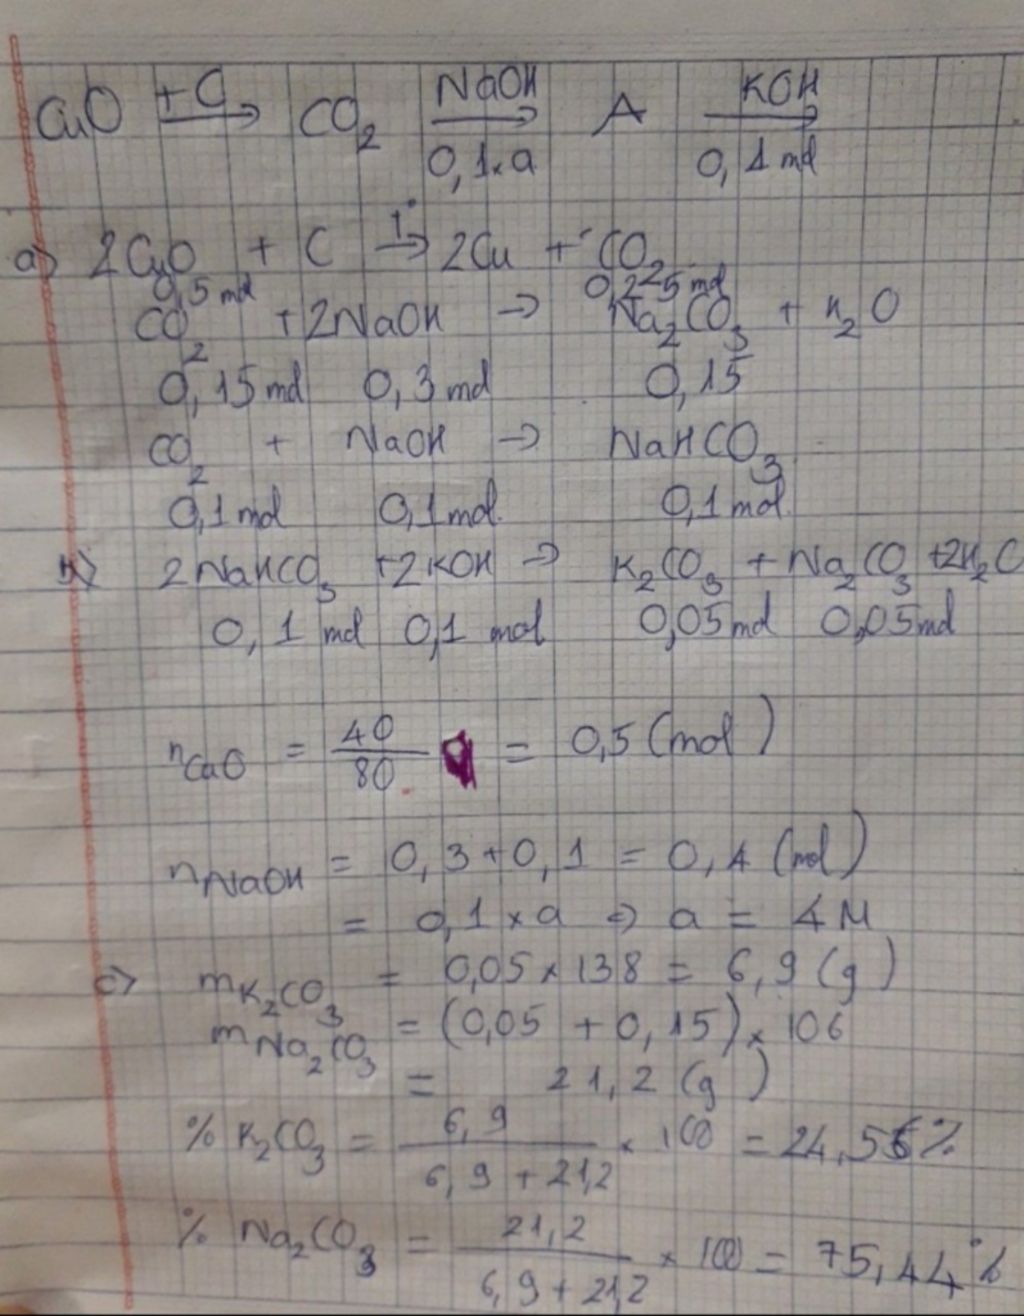 CuO +C → CO2 NaOH → 0,1.a A KOH → 0,1 mol
a) 2CuO + C T° → 2Cu + CO2
0,5 mol 0,225 mol
CO2 + 2NaOH → Na2CO3 + H2O
0,15 mol 0,3 mol 0,15
CO2 + NaOH → NaHCO3
0,1 mol 0,1 mol. 0,1 mol.
b) 2NaHCO3 + 2KOH → K2CO3 + Na2CO3 + 2H2O
0,1 mol 0,1 mol 0,05 mol 0,05 mol
nCuO = 40/80 = 0,5 (mol)
nNaOH = 0,3 + 0,1 = 0,4 (mol)
= 0,1 × a ⇒ a = 4M
c) mK2CO3 = 0,05 × 138 = 6,9 (g)
mNa2CO3 = (0,05 + 0,15) × 106
= 21,2 (g)
% K2CO3 = 6,9 / 6,9 + 21,2 × 100 = 24,56%
% Na2CO3 = 21,2 / 6,9 + 21,2 × 100 = 75,44%